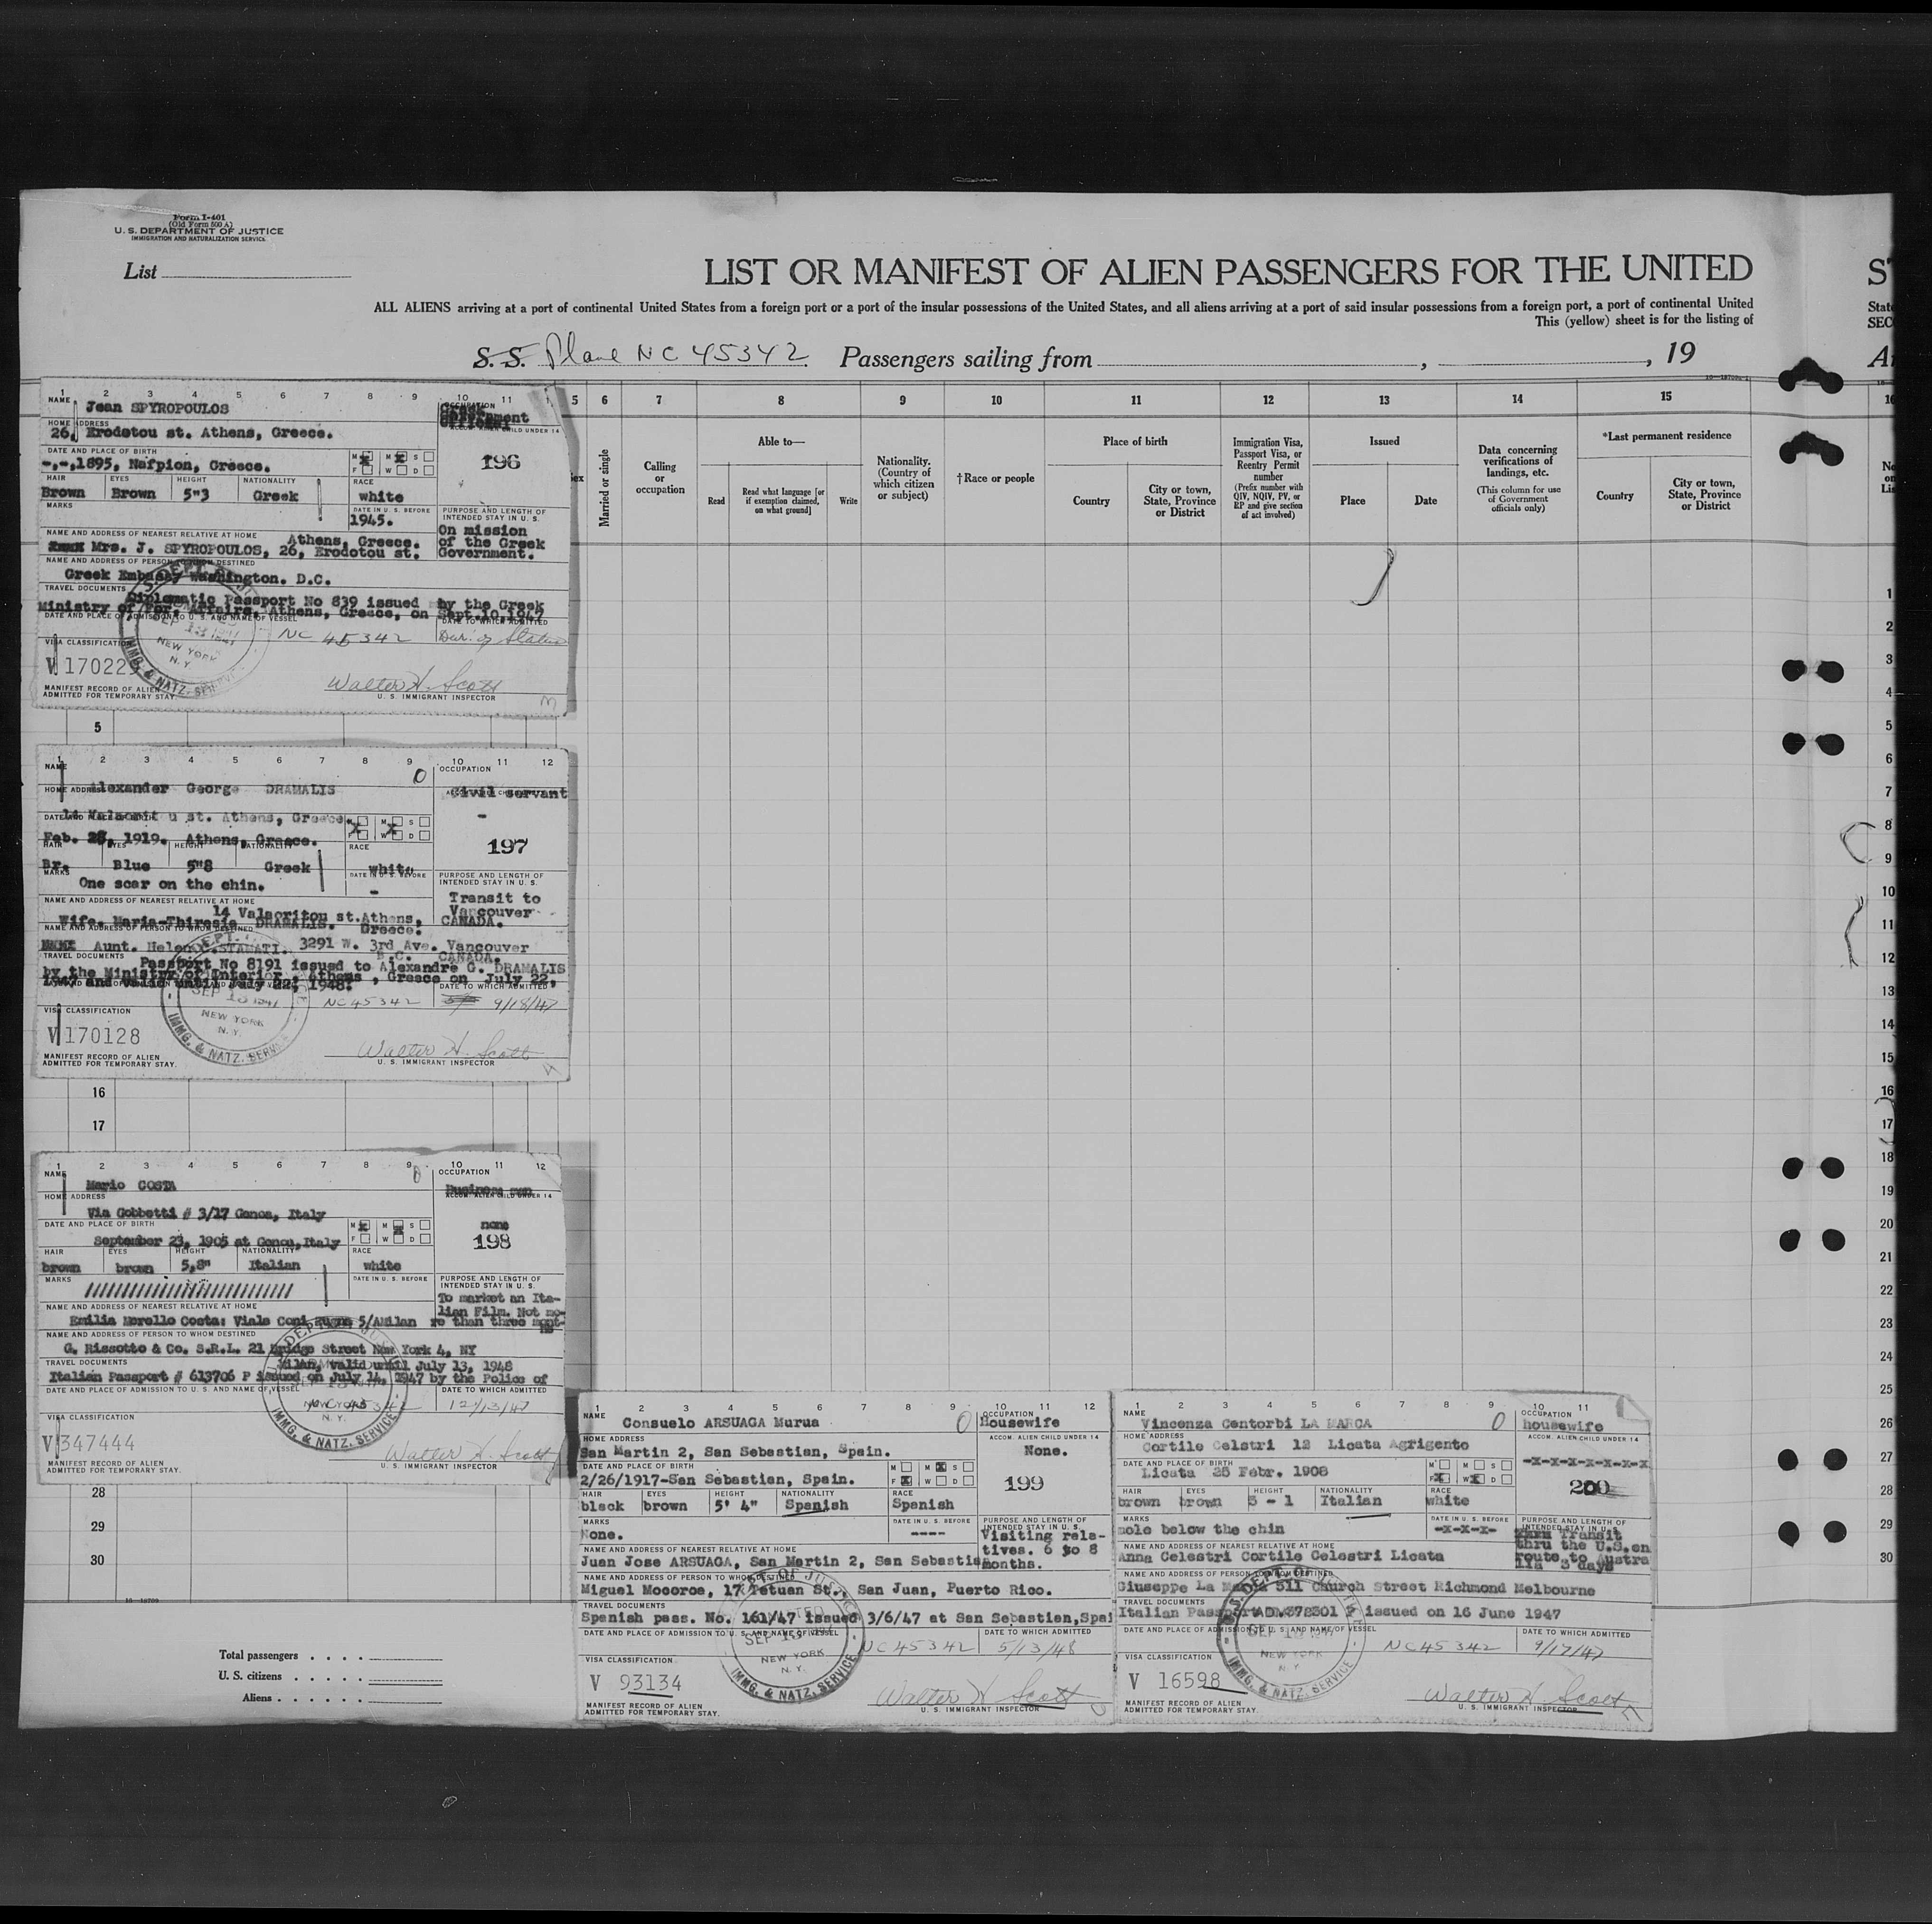 Form I-401
(Old Form 500 A)
U. S. DEPARTMENT OF JUSTICE
IMMIGRATION AND NATURALIZATION SERVICE
List
LIST OR MANIFEST OF ALIEN PASSENGERS FOR THE UNITED
ALL ALIENS arriving at a port of continental United States from a foreign port or a port of the insular possessions of the United States, and all aliens arriving at a port of said insular possessions from a foreign port, a port of continental United
This (yellow) sheet is for the listing of
S. S. Plane NC 45342 Passengers sailing from , , 19
5 6 7 8 9 10 11 12 13 14 15
Married or single
Calling or occupation
Able to—
Read
Read what language [or if exemption claimed, on what ground]
Write
Nationality. (Country of which citizen or subject)
†Race or people
Place of birth
Country
City or town, State, Province or District
Immigration Visa, Passport Visa, or Reentry Permit number
(Prefix number with QIV, NQIV, PV, or RP and give section of act involved)
Issued
Place
Date
Data concerning verifications of landings, etc.
(This column for use of Government officials only)
*Last permanent residence
Country
City or town, State, Province or District
1 2 3 4 5 6 7 8 9 10 11
NAME Jean SPYROPOULOS
OCCUPATION Greek Government Official
HOME ADDRESS
26, Erodotou st. Athens, Greece.
ACCOM. ALIEN CHILD UNDER 14
DATE AND PLACE OF BIRTH
-,-,1895, Nafpion, Greece.
M X M X S
F W D
196
HAIR EYES HEIGHT NATIONALITY RACE
Brown Brown 5"3 Greek white
MARKS
DATE IN U. S. BEFORE
1945.
PURPOSE AND LENGTH OF INTENDED STAY IN U. S.
On mission
of the Greek
Government.
NAME AND ADDRESS OF NEAREST RELATIVE AT HOME
Athens, Greece.
Mrs. J. SPYROPOULOS, 26, Erodotou st.
NAME AND ADDRESS OF PERSON TO WHOM DESTINED
Greek Embassy Washington. D.C.
TRAVEL DOCUMENTS
Diplomatic Passport No 839 issued by the Greek
Ministry of For. Affairs, Athens, Greece, on Sept.10,1947
DATE AND PLACE OF ADMISSION TO U. S. AND NAME OF VESSEL
DATE TO WHICH ADMITTED
SEP 13 1947
NEW YORK
N. Y.
IMMG. & NATZ. SERVICE
NC 45342
Dur. of Status
VISA CLASSIFICATION
V 170225
Walter H. Scott
MANIFEST RECORD OF ALIEN
ADMITTED FOR TEMPORARY STAY.
U. S. IMMIGRANT INSPECTOR
5
1 2 3 4 5 6 7 8 9 10 11 12
NAME
OCCUPATION
Alexander George DRAMALIS
Civil servant
HOME ADDRESS
14 Valaoritou st. Athens, Greece.
-
DATE AND PLACE OF BIRTH
Feb. 28, 1919. Athens, Greece.
M X M X S
F W D
197
HAIR EYES HEIGHT NATIONALITY RACE
Br. Blue 5"8 Greek white
MARKS
One scar on the chin.
DATE IN U. S. BEFORE
-
PURPOSE AND LENGTH OF INTENDED STAY IN U. S.
Transit to
Vancouver
CANADA.
NAME AND ADDRESS OF NEAREST RELATIVE AT HOME
14 Valaoritou st.Athens,
Wife. Maria-Thiresia DRAMALIS. Greece.
NAME AND ADDRESS OF PERSON TO WHOM DESTINED
Aunt. Helen C.STAMATI. 3291 W. 3rd Ave. Vancouver
B.C. CANADA.
TRAVEL DOCUMENTS
Passport No 8191 issued to Alexandre G. DRAMALIS
by the Ministry of Interior, Athens, Greece on July 22,
1947 and valid until July 22, 1948.
DATE TO WHICH ADMITTED
SEP 13 1947
NEW YORK
N. Y.
IMMG. & NATZ. SERVICE
NC45342
9/18/47
VISA CLASSIFICATION
V 170128
Walter H. Scott
MANIFEST RECORD OF ALIEN
ADMITTED FOR TEMPORARY STAY.
U. S. IMMIGRANT INSPECTOR
16
17
1 2 3 4 5 6 7 8 9 10 11 12
NAME
Mario COSTA
OCCUPATION
Business man
HOME ADDRESS
Via Gobbetti # 3/17 Genoa, Italy
ACCOM. ALIEN CHILD UNDER 14
none
DATE AND PLACE OF BIRTH
September 23, 1905 at Genoa,Italy
M X M X S
F W D
198
HAIR EYES HEIGHT NATIONALITY RACE
brown brown 5,8" Italian white
MARKS
DATE IN U. S. BEFORE
PURPOSE AND LENGTH OF INTENDED STAY IN U. S.
To market an Ita-
lian Film. Not mo-
re than three mont-
hs
NAME AND ADDRESS OF NEAREST RELATIVE AT HOME
Emilia Morello Costa: Viale Coni Zugna 5/AMilan
NAME AND ADDRESS OF PERSON TO WHOM DESTINED
G. Rissotto & Co. S.R.L. 21 Bridge Street New York 4, NY
TRAVEL DOCUMENTS
Milan, valid until July 13, 1948
Italian Passport # 613706 P issued on July 14, 1947 by the Police of
DATE AND PLACE OF ADMISSION TO U. S. AND NAME OF VESSEL
DATE TO WHICH ADMITTED
NC 45342
12/13/47
NEW YORK
N. Y.
IMMG. & NATZ. SERVICE
VISA CLASSIFICATION
V 347444
Walter H. Scott
MANIFEST RECORD OF ALIEN
ADMITTED FOR TEMPORARY STAY.
U. S. IMMIGRANT INSPECTOR
28
29
30
Total passengers
U. S. citizens
Aliens
1 2 3 4 5 6 7 8 9 10 11 12
NAME
Consuelo ARSUAGA Murua
OCCUPATION
Housewife
HOME ADDRESS
San Martin 2, San Sebastian, Spain.
ACCOM. ALIEN CHILD UNDER 14
None.
DATE AND PLACE OF BIRTH
2/26/1917-San Sebastian, Spain.
M M X S
F X W D
199
HAIR EYES HEIGHT NATIONALITY RACE
black brown 5' 4" Spanish Spanish
MARKS
None.
DATE IN U. S. BEFORE
----
PURPOSE AND LENGTH OF INTENDED STAY IN U. S.
Visiting rela-
tives. 6 to 8
months.
NAME AND ADDRESS OF NEAREST RELATIVE AT HOME
Juan Jose ARSUAGA, San Martin 2, San Sebastia
NAME AND ADDRESS OF PERSON TO WHOM DESTINED
Miguel Mocoroa, 17 Tetuan St., San Juan, Puerto Rico.
TRAVEL DOCUMENTS
Spanish pass. No. 161/47 issued 3/6/47 at San Sebastian,Spai
DATE AND PLACE OF ADMISSION TO U. S. AND NAME OF VESSEL
DATE TO WHICH ADMITTED
SEP 13 1947
NEW YORK
N. Y.
IMMG. & NATZ. SERVICE
NC45342
5/13/48
VISA CLASSIFICATION
V 93134
Walter H Scott
MANIFEST RECORD OF ALIEN
ADMITTED FOR TEMPORARY STAY.
U. S. IMMIGRANT INSPECTOR
1 2 3 4 5 6 7 8 9 10 11
NAME
Vincenza Centorbi LA MARCA
OCCUPATION
housewife
HOME ADDRESS
Cortile Celstri 12 Licata Agrigento
ACCOM. ALIEN CHILD UNDER 14
-x-x-x-x-x-x-x
DATE AND PLACE OF BIRTH
Licata 25 Febr. 1908
M M S
F X W X D
200
HAIR EYES HEIGHT NATIONALITY RACE
brown brown 5 - 1 Italian white
MARKS
mole below the chin
DATE IN U. S. BEFORE
-x-x-x-
PURPOSE AND LENGTH OF INTENDED STAY IN U. S.
Transit
thru the U.S.en
route to Austra
lia 3 days
NAME AND ADDRESS OF NEAREST RELATIVE AT HOME
Anna Celestri Cortile Celestri Licata
NAME AND ADDRESS OF PERSON TO WHOM DESTINED
Giuseppe La Marca 511 Church Street Richmond Melbourne
TRAVEL DOCUMENTS
Italian Passport 372301 P issued on 16 June 1947
DATE AND PLACE OF ADMISSION TO U. S. AND NAME OF VESSEL
DATE TO WHICH ADMITTED
NEW YORK
N. Y.
IMMG. & NATZ. SERVICE
NC45342
9/17/47
VISA CLASSIFICATION
V 16598
Walter H Scott
MANIFEST RECORD OF ALIEN
ADMITTED FOR TEMPORARY STAY.
U. S. IMMIGRANT INSPECTOR
1
2
3
4
5
6
7
8
9
10
11
12
13
14
15
16
17
18
19
20
21
22
23
24
25
26
27
28
29
30